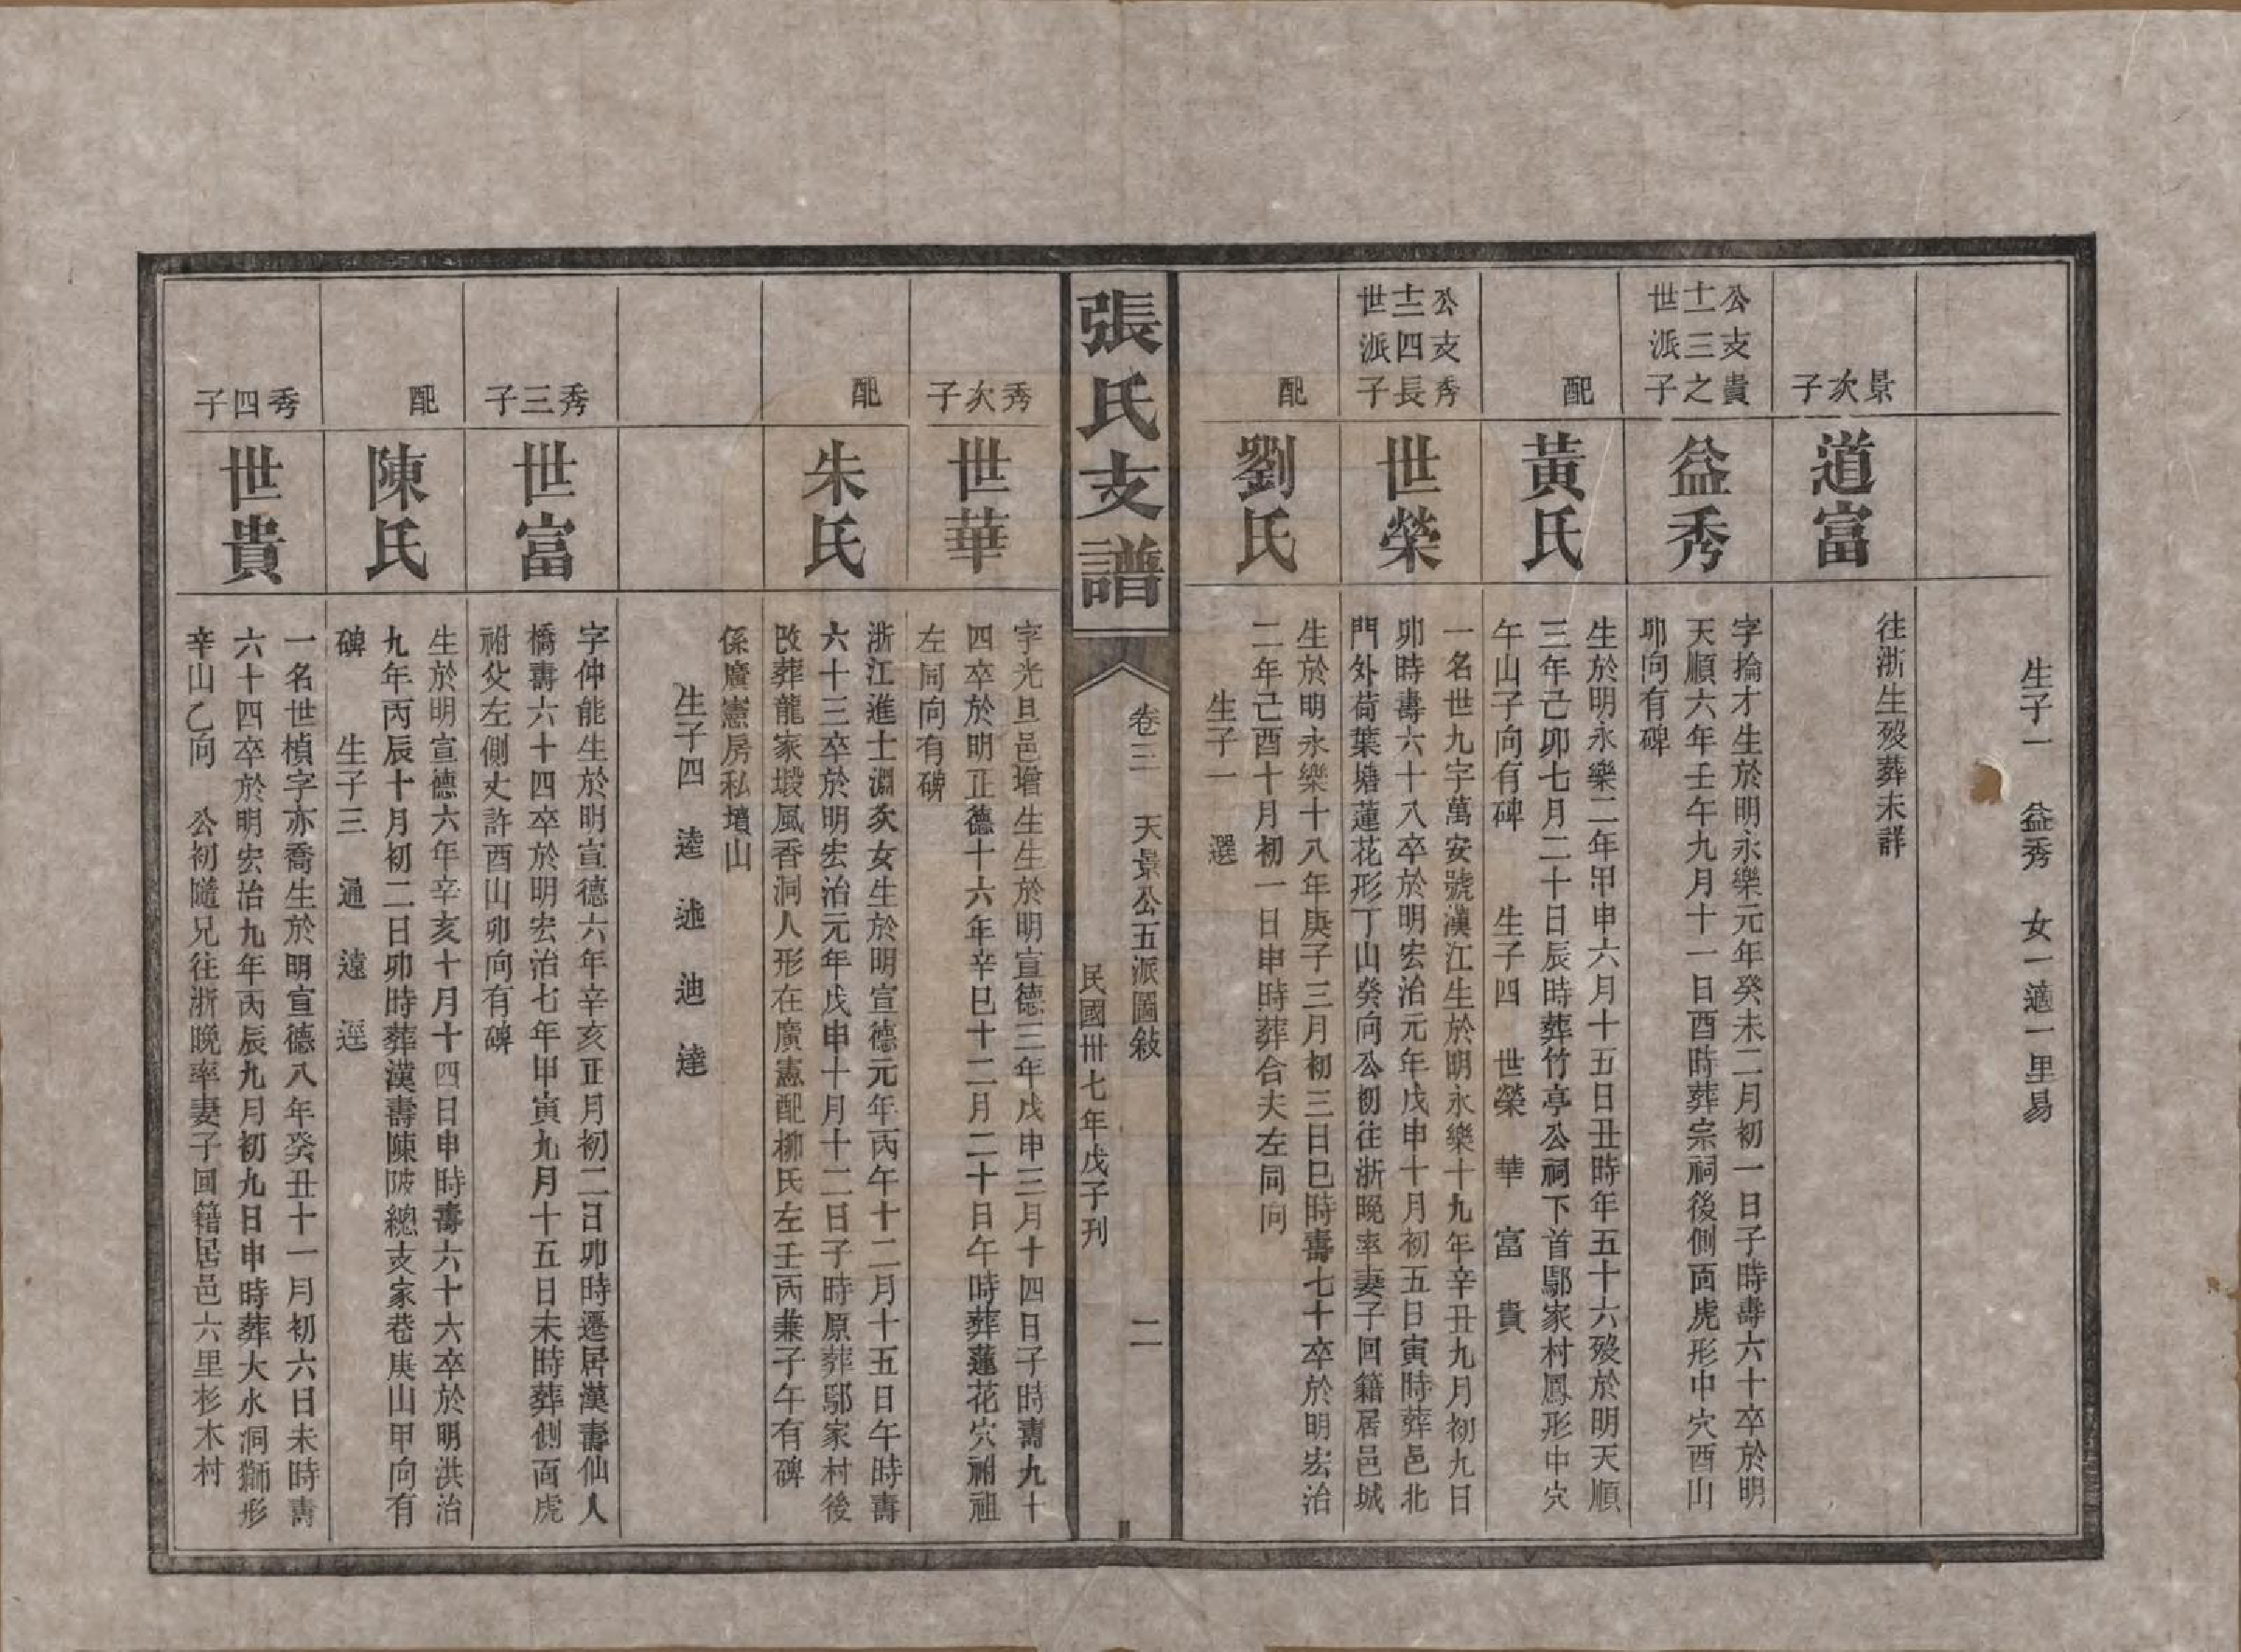 生子一　益秀　女一適一里易
景次子
道富
往浙生歿葬未詳
公支貴
十三之
十一世派子
益秀
字掄才生於明永樂元年癸未二月初一日子時壽六十卒於明
天順六年壬午九月十一日酉時葬宗祠後側面虎形中穴酉山
卯向有碑
配
黃氏
生於明永樂二年甲申六月十五日丑時年五十六歿於明天順
三年己卯七月二十日辰時葬竹亭公祠下首鄢家村鳳形中穴
午山子向有碑　　生子四　世榮　華　富　貴
公支秀
十二四長
世派子
世榮
一名世九字萬安號漢江生於明永樂十九年辛丑九月初九日
卯時壽六十八卒於明宏治元年戊申十月初五日寅時葬邑北
門外荷葉塘蓮花形丁山癸向公初往浙晚率妻子回籍居邑城
配
劉氏
生於明永樂十八年庚子三月初三日巳時壽七十卒於明宏治
二年己酉十月初一日申時葬合夫左同向
生子一　　選
張氏支譜
卷三　天景公五派圖敍　　二
民國卅七年戊子刊
秀次子
世華
字光旦邑增生生於明宣德三年戊申三月十四日子時壽九十
四卒於明正德十六年辛巳十二月二十日午時葬蓮花穴祔祖
左同向有碑
配
朱氏
浙江進士淵亥女生於明宣德元年丙午十二月十五日午時壽
六十三卒於明宏治元年戊申十月十二日子時原葬鄢家村後
改葬龍家塅風香洞人形在廣憲配柳氏左壬丙兼子午有碑
係廣憲房私墳山
生子四　逵　迆　迪　達
秀三子
世富
字仲能生於明宣德六年辛亥正月初二日卯時遷居漢壽仙人
橋壽六十四卒於明宏治七年甲寅九月十五日未時葬側面虎
祔父左側丈許酉山卯向有碑
配
陳氏
生於明宣德六年辛亥十月十四日申時壽六十六卒於明洪治
九年丙辰十月初二日卯時葬漢壽陳陂總支家巷庚山甲向有
碑　　生子三　通　遠　逕
秀四子
世貴
一名世楨字亦喬生於明宣德八年癸丑十一月初六日未時壽
六十四卒於明宏治九年丙辰九月初九日申時葬大水洞獅形
辛山乙向　公初隨兄往浙晚率妻子回籍居邑六里杉木村